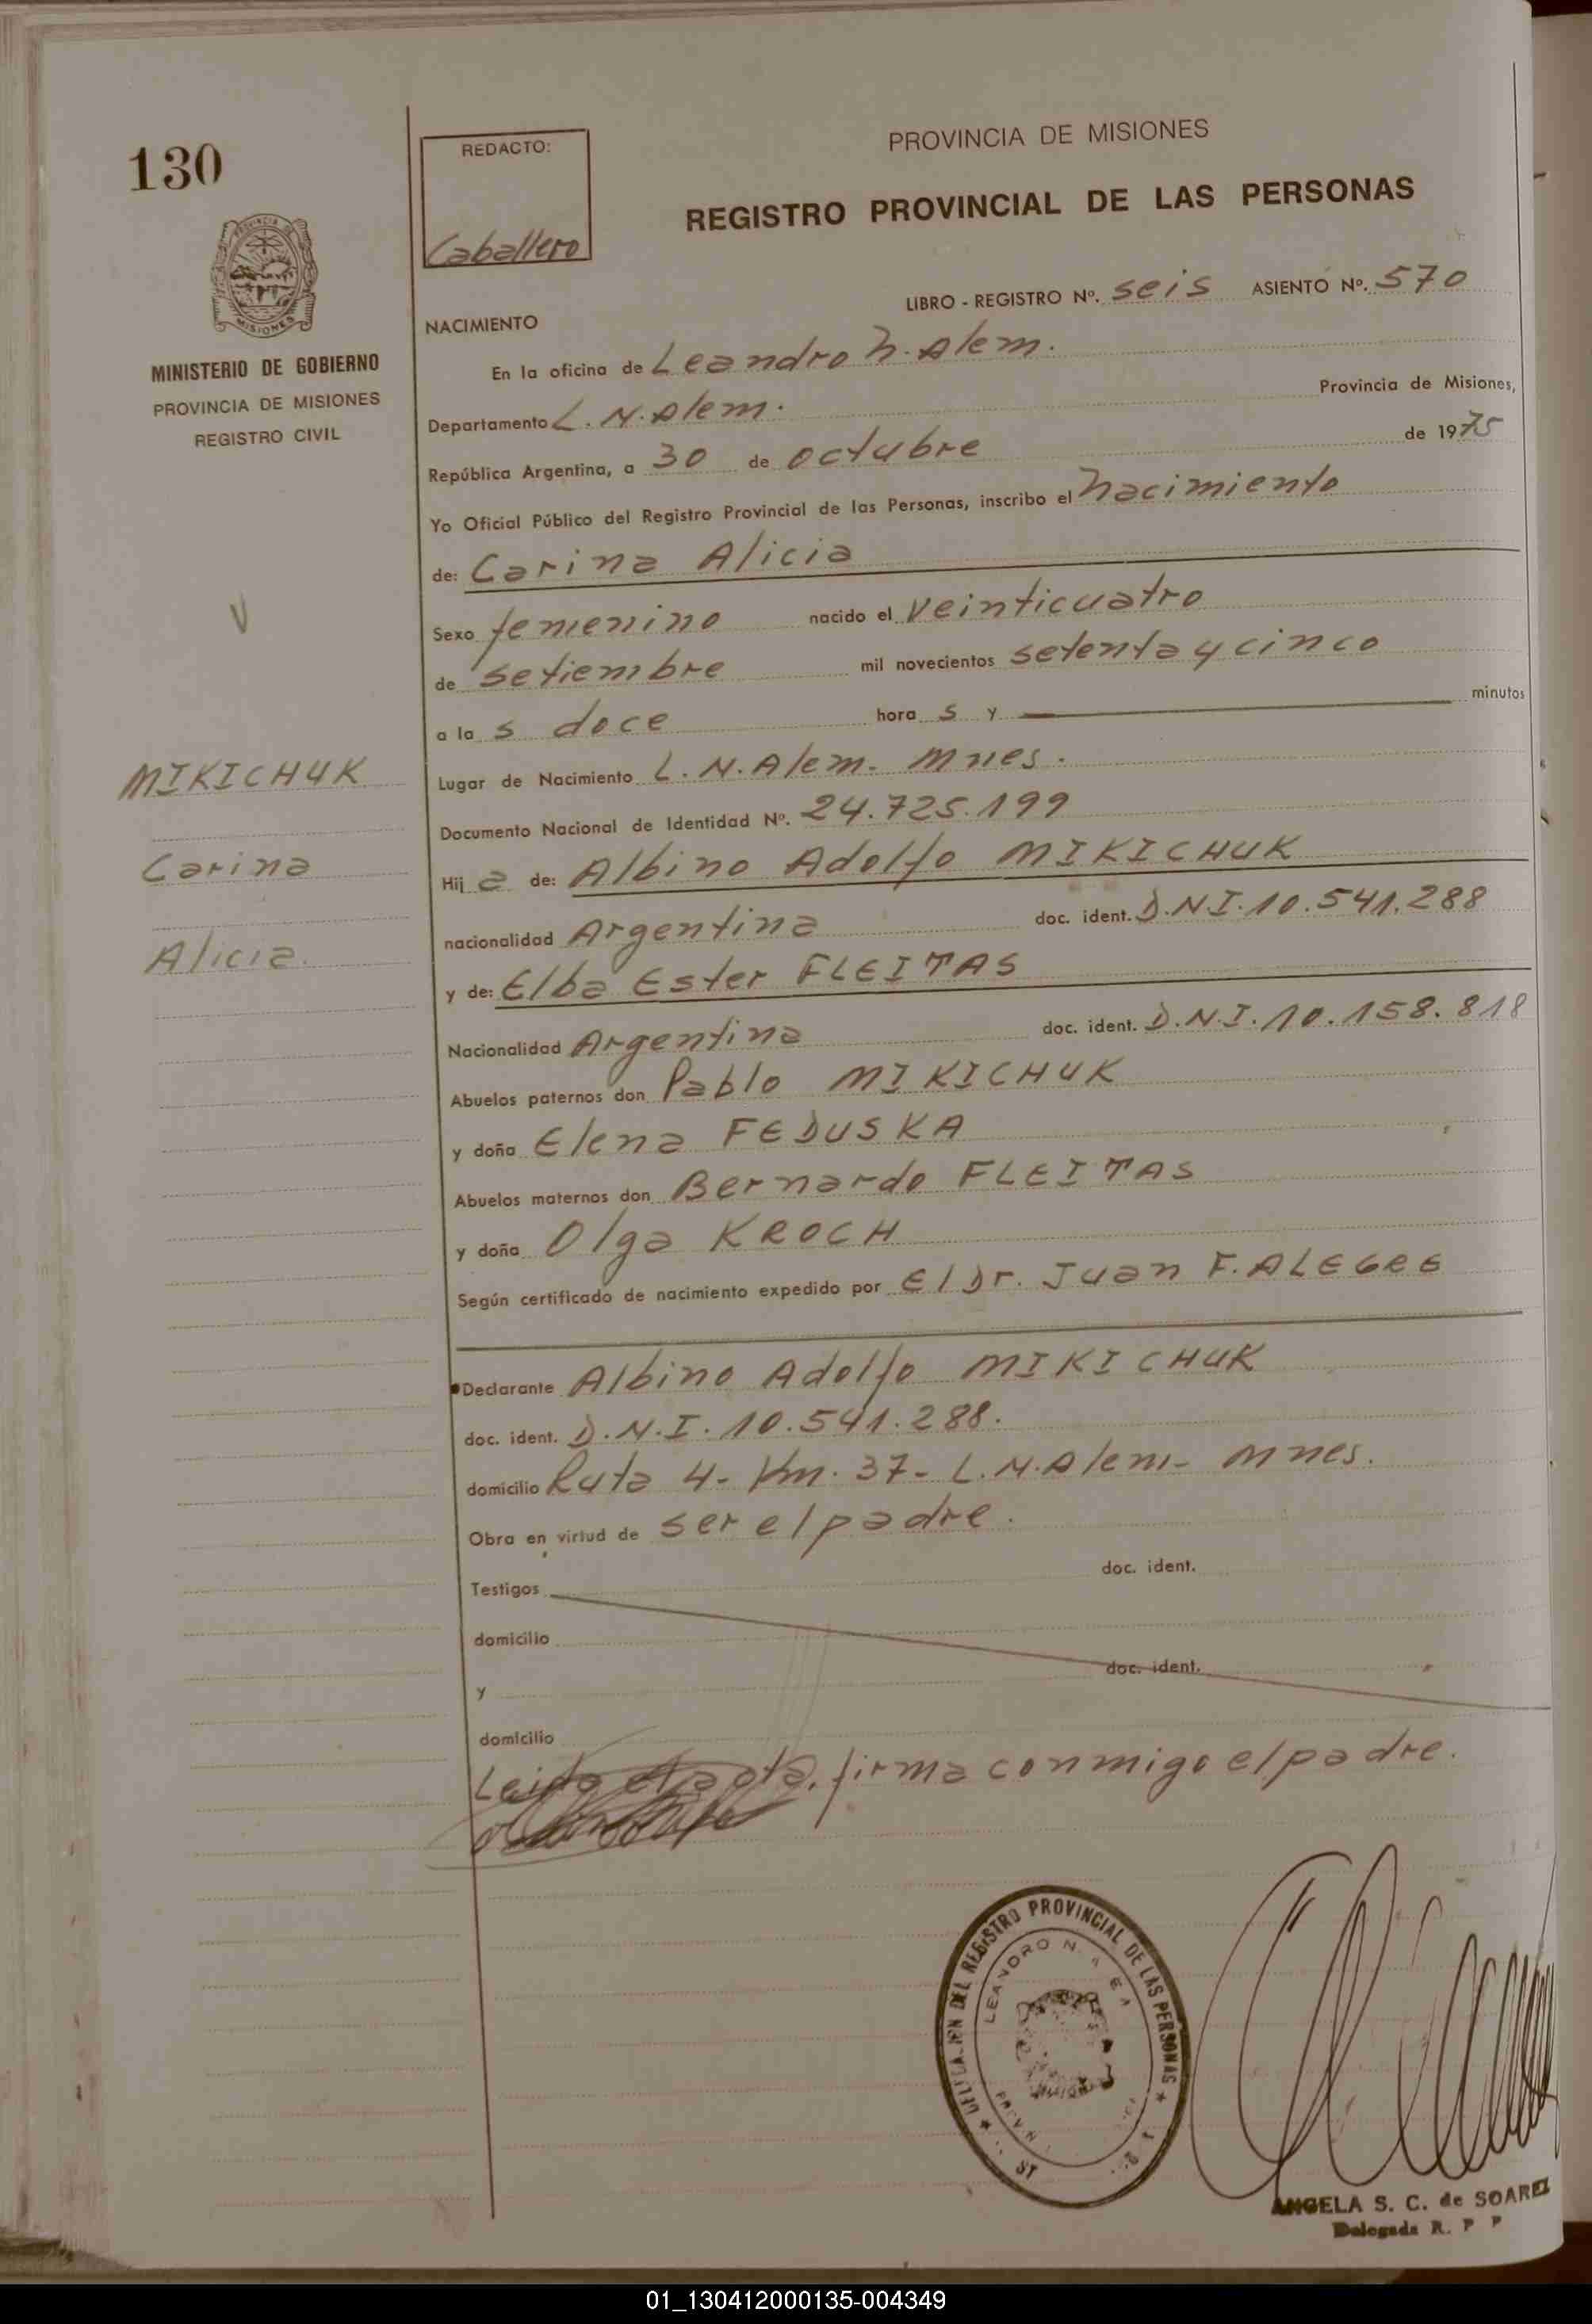 130
PROVINCIA DE MISIONES
MINISTERIO DE GOBIERNO
PROVINCIA DE MISIONES
REGISTRO CIVIL
MIKICHUK
Carina
Alicia.
REDACTO:
Caballero
PROVINCIA DE MISIONES
REGISTRO PROVINCIAL DE LAS PERSONAS
LIBRO - REGISTRO Nº. seis ASIENTO Nº. 570
NACIMIENTO
En la oficina de Leandro N. Alem.
Departamento L. N. Alem. Provincia de Misiones,
República Argentina, a 30 de octubre de 1975
Yo Oficial Público del Registro Provincial de las Personas, inscribo el nacimiento
de: Carina Alicia
Sexo femenino nacido el veinticuatro
de setiembre mil novecientos setenta y cinco
a la s doce hora s y minutos
Lugar de Nacimiento L. N. Alem - Mnes.
Documento Nacional de Identidad Nº. 24.725.199
Hij a de: Albino Adolfo MIKICHUK
nacionalidad Argentina doc. ident. D.N.I. 10.541.288
y de: Elba Ester FLEITAS
Nacionalidad Argentina doc. ident. D.N.I. 10.158.818
Abuelos paternos don Pablo MIKICHUK
y doña Elena FEDUSKA
Abuelos maternos don Bernardo FLEITAS
y doña Olga KROCH
Según certificado de nacimiento expedido por El Dr. Juan F. ALEGRE
Declarante Albino Adolfo MIKICHUK
doc. ident. D.N.I. 10.541.288.
domicilio Ruta 4 - Km. 37 - L. N. Alem - Mnes.
Obra en virtud de ser el padre.
doc. ident.
Testigos
domicilio
doc. ident.
y
domicilio
Leida el acta, firma conmigo el padre.
DEL REGISTRO PROVINCIAL DE LAS PERSONAS
LEANDRO N.
ANGELA S. C. de SOAREZ
Delegada R. P P
01_130412000135-004349